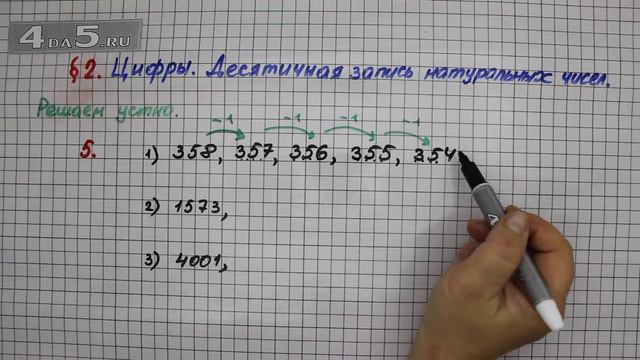 4DA5.RU
§2. Цифры. Десятичная запись натуральных чисел.
Решаем устно.
-1 -1 -1 -1
5. 1) 358, 357, 356, 355, 354
2) 1573,
3) 4001,